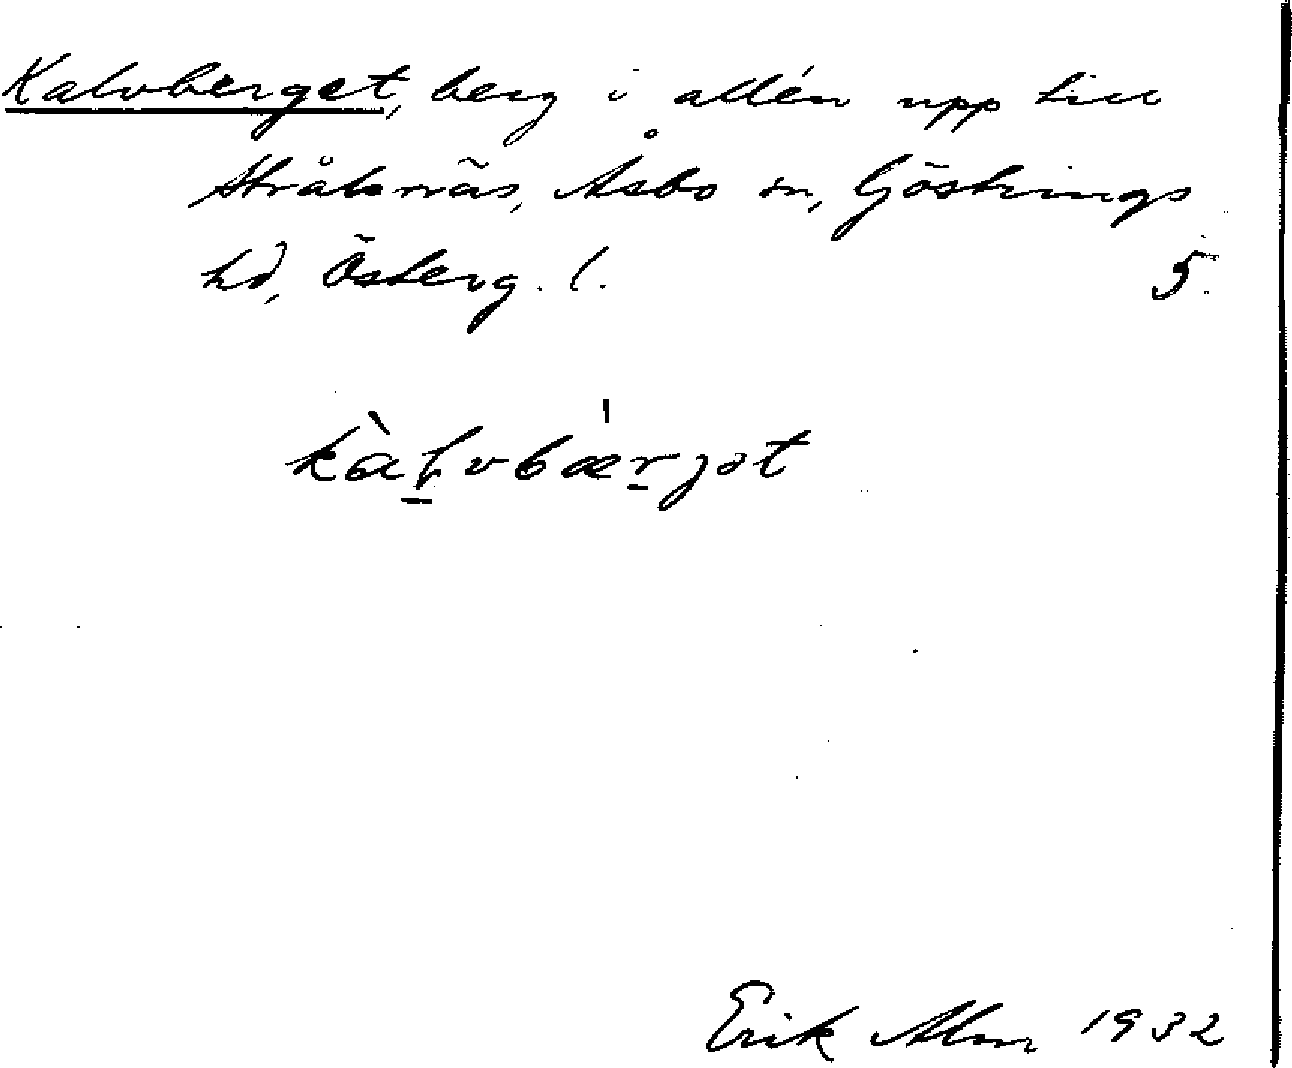 Kalvberget, berg i allén upp till
Stråknäs, Åsbo sn, Göstrings
hd, Österg. l. 5.
kàḷvbæ̍r̠jət
Erik Alm 1932